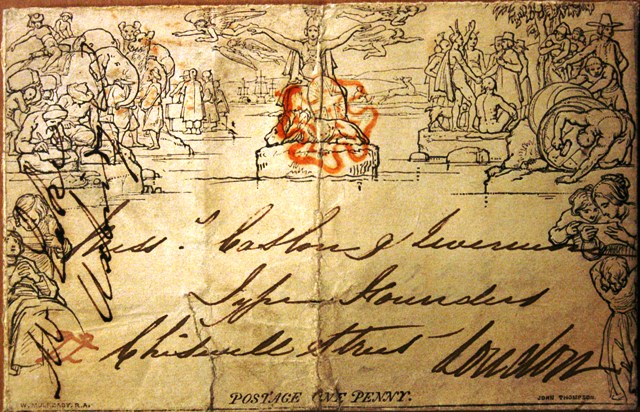 Mess.rs Caslon & Livermore
Type Founders
Chiswell Street London
POSTAGE ONE PENNY.
W. MULREADY, R.A.
JOHN THOMPSON.